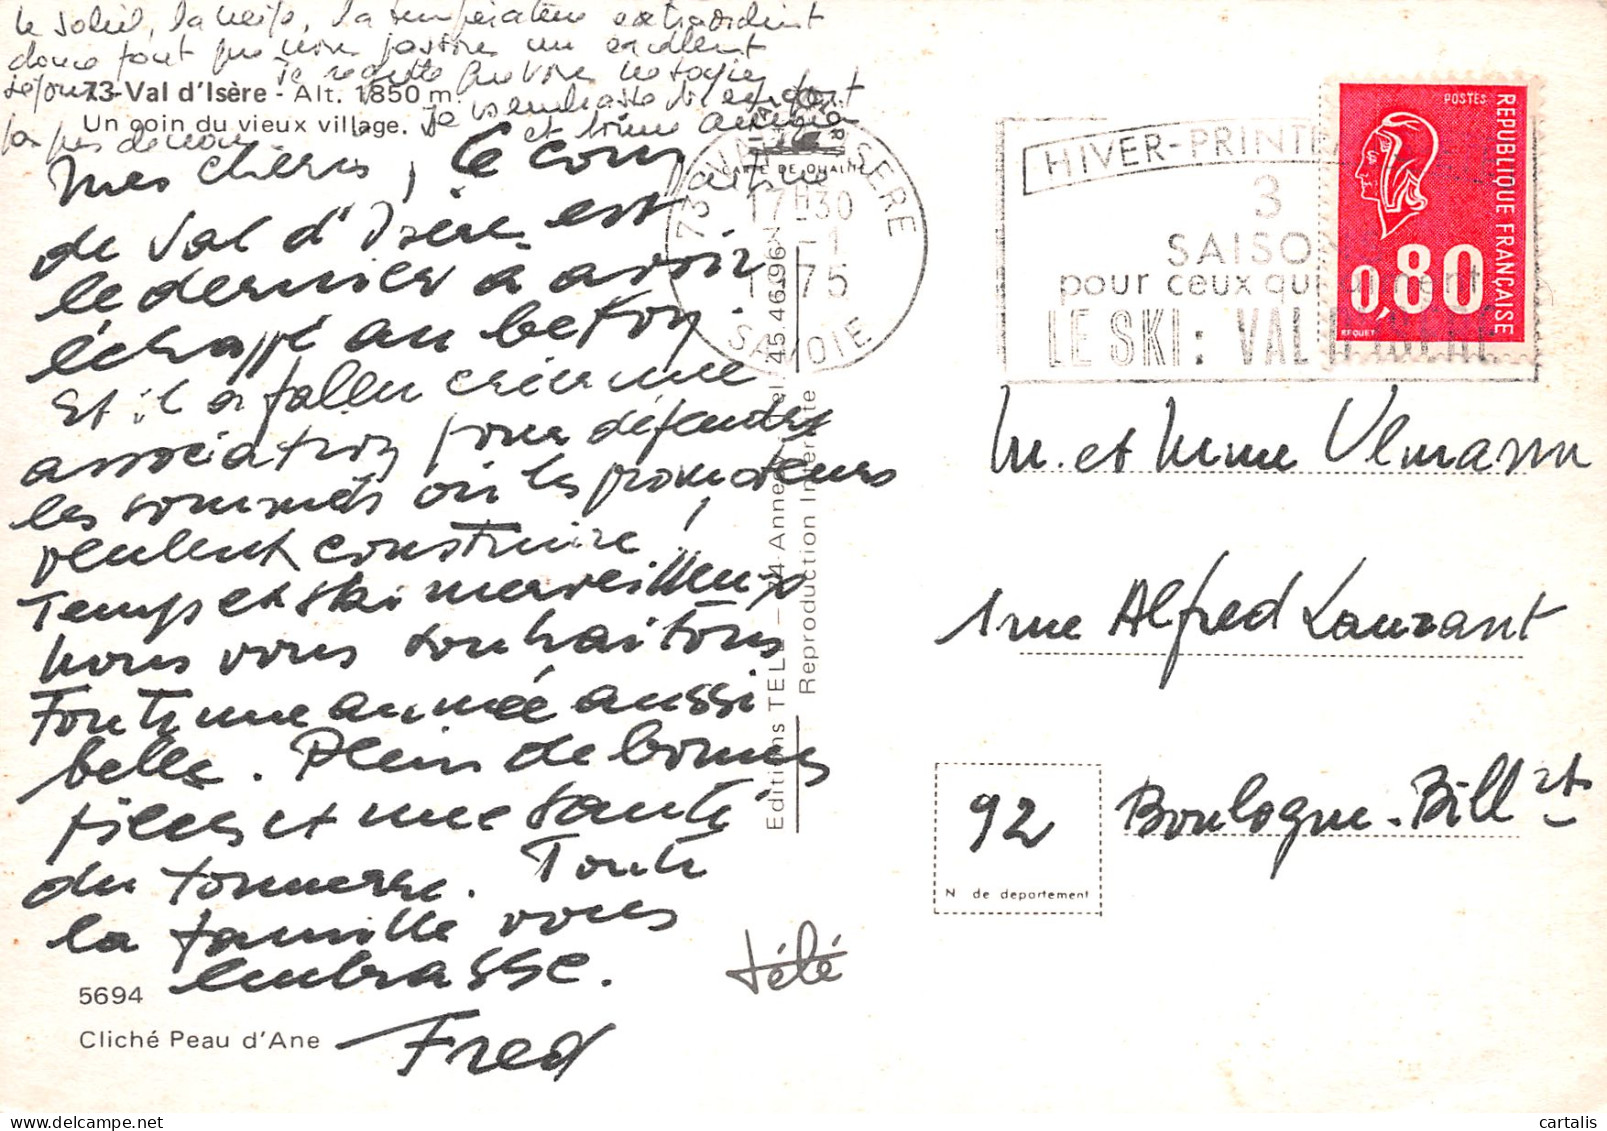 le soleil, la neige, la température extraordinairement
douce font que nous passons un excellent
séjour. je regrette que vous ne soyiez
pas je vous embrasse
et
73-Val d'Isère - Alt. 1850 m.
Un coin du vieux village.
Mes chéris, le coin
de Val d'Isère est
le dernier à avoir
échappé au béton.
Et il a fallu créer une
association pour défendre
les sommets où les promoteurs
veulent construire !
Temps et ski merveilleux
nous vous souhaitons
toute une année aussi
belle. Plein de bonnes
pièces et une santé
du tonnerre. Toute
la famille vous
embrasse.
Fred
5694
Cliché Peau d'Ane
Editions TELE - 74 Annecy Tel. 45.46.96
Reproduction Interdite
télé
73 VAL D'ISERE
17H30
-1
1975
SAVOIE
HIVER-PRINTE
3
SAISO
pour ceux qui
LE SKI : VAL D'ISERE
POSTES
REPUBLIQUE FRANÇAISE
0,80
BEQUET
M. et Mme Ulmann
1 rue Alfred Laurant
92 Boulogne-Bill
N de departement
cartalis